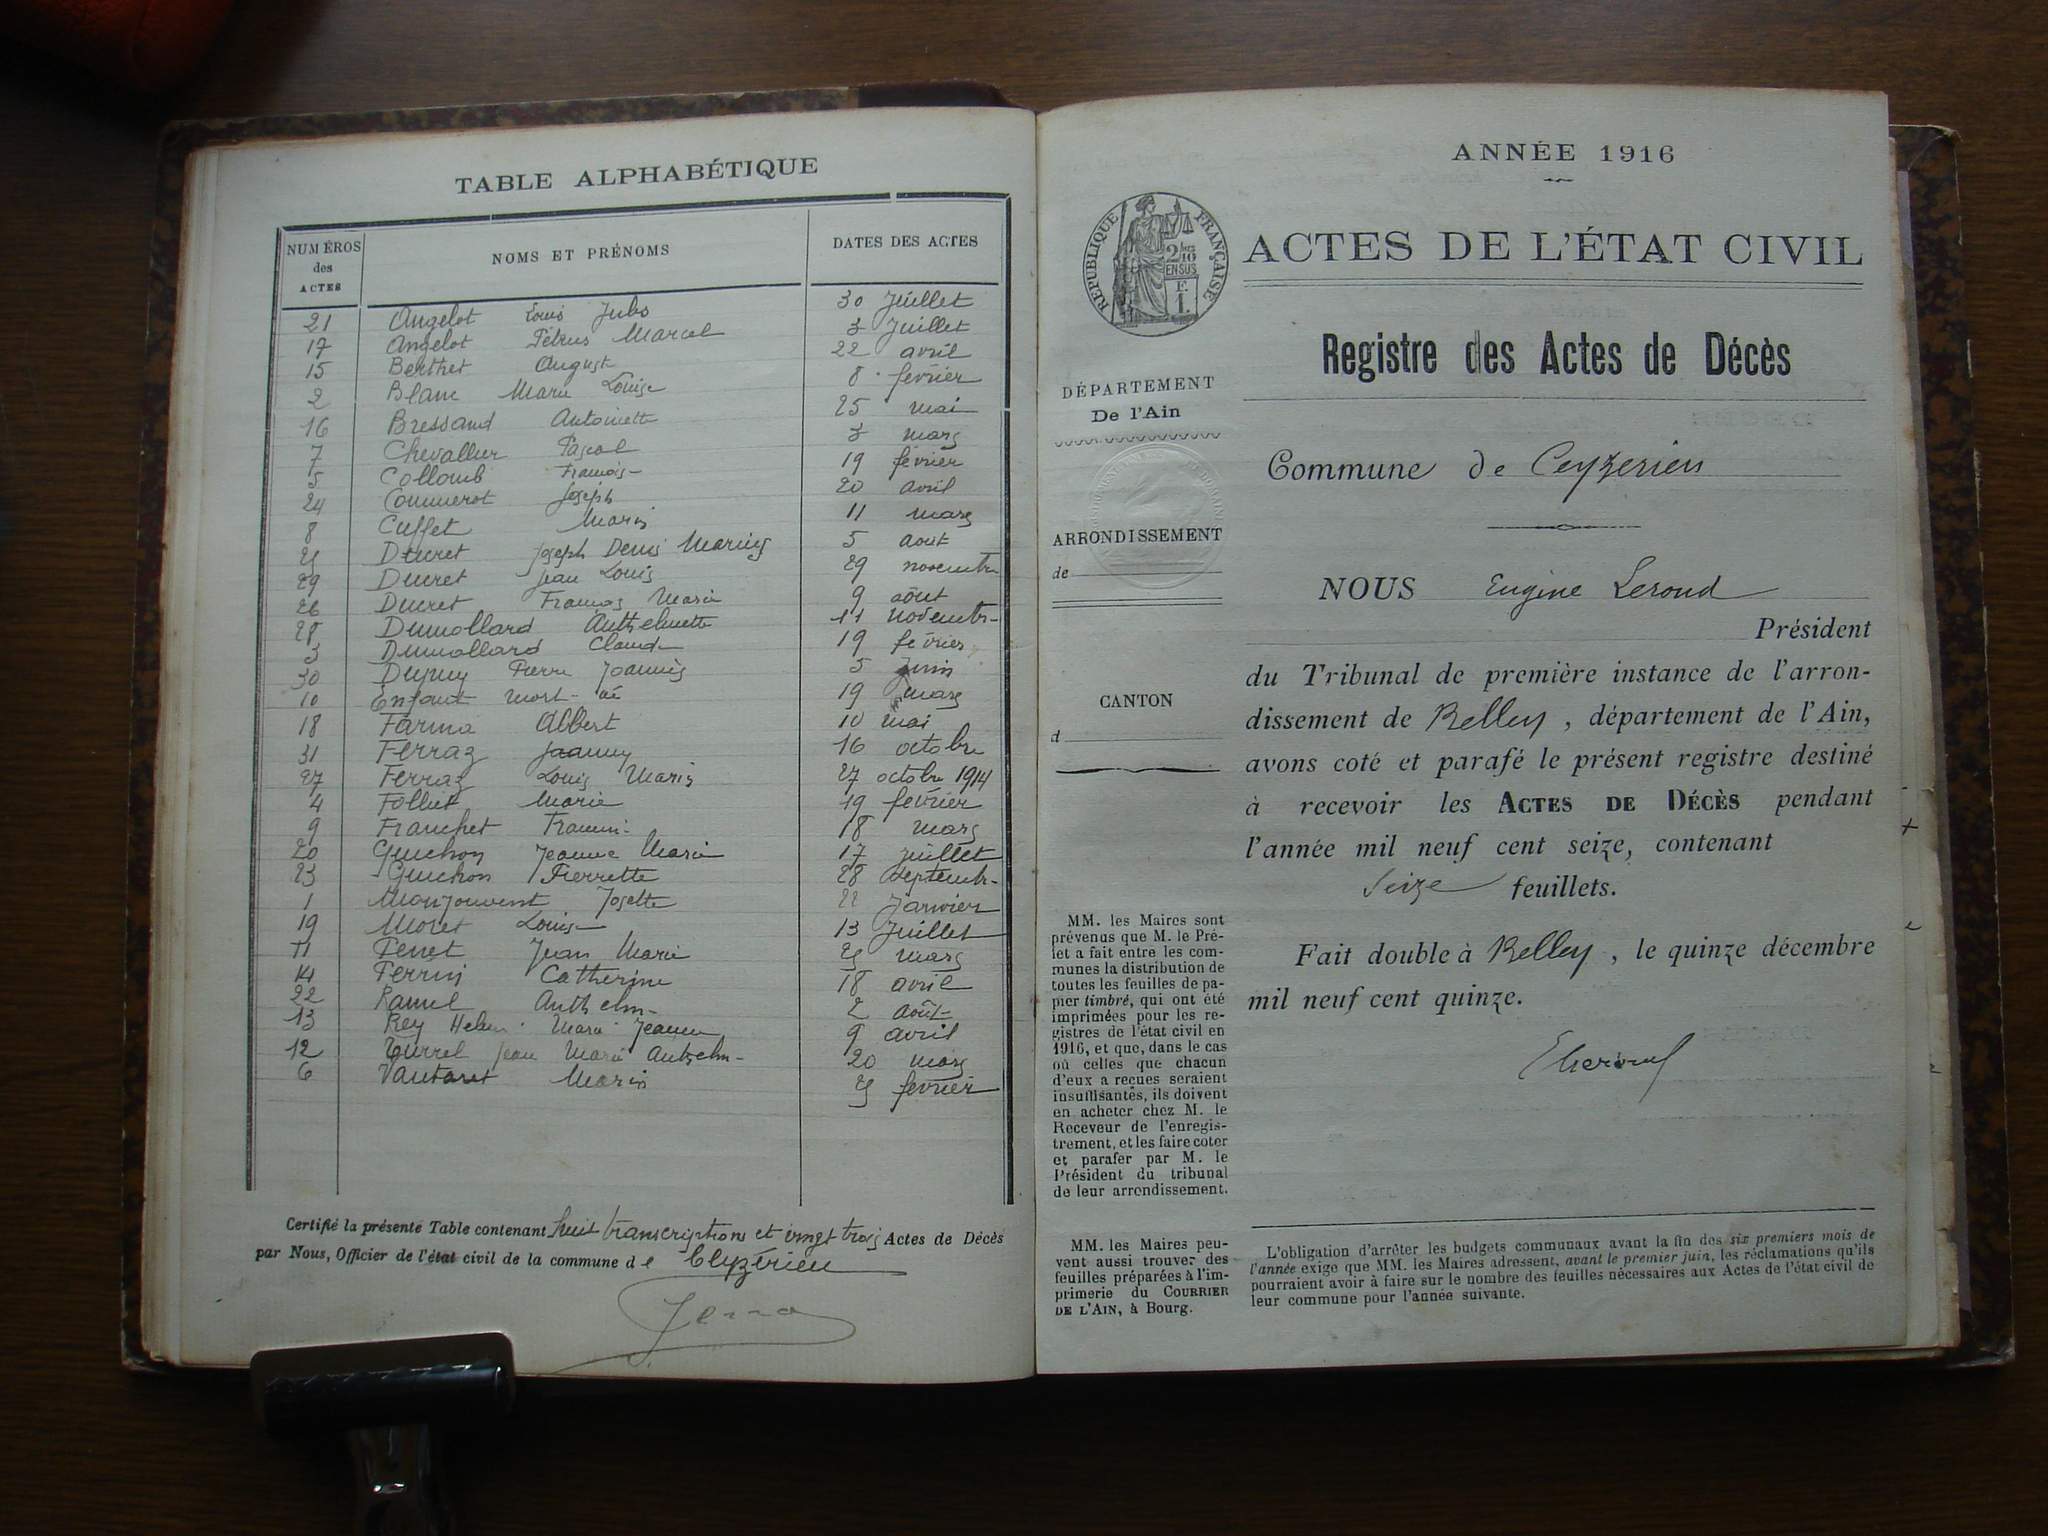 TABLE ALPHABÉTIQUE
NUMÉROS des ACTES
NOMS ET PRÉNOMS
DATES DES ACTES
21 Angelot Louis Jules 30 Juillet
17 Angelot Pétrus Marcel 3 Juillet
15 Berthet August 22 avril
2 Blanc Marie Louise 8 février
16 Bressand Antoinette 25 mai
7 Chevallier Pascal 3 mars
5 Collomb François 19 février
24 Joseph 20 avril
8 Cuffet Marie 11 mars
25 Ducret Joseph Denis Marius 5 aout
29 Ducret Jean Louis 29 novembre
26 Ducret François Marie 9 aôut
28 Dumollard Anthelmette 11 novembr-
3 Dumollard Claude 19 février
30 Dupuy Pierre Joannès 5 Juin
10 Enfant mort-né 19 mars
18 Farina Albert 10 mai
31 Ferraz Joanny 16 octobre
27 Ferraz Louis Marie 27 octobre 1914
4 Folliet Marie 19 février
9 Franchet 18 mars
20 Guichon Jeanne Marie 17 Juillet
23 Guichon Pierrette 28 Septembr-
1 Monjouvent Josette 22 Janvier
19 Moret Louis 13 Juillet
11 Penet Jean Marie 25 mars
14 Perrin Catherine 18 avril
22 Ramel Anthelm- 2 aôut
13 Rey Helen Marie Jeanne 9 avril
12 Turrel Jean Marie Anthelm- 20 mars
6 Vautaret Marie 25 février
Certifié la présente Table contenant huit transcriptions et vingt trois Actes de Décès
par Nous, Officier de l'état civil de la commune de Ceyzérieu
ANNÉE 1916
RÉPUBLIQUE FRANÇAISE
2/10 EN SUS
F. 1.
ACTES DE L'ÉTAT CIVIL
Registre des Actes de Décès
DÉPARTEMENT
De l'Ain
Commune de Ceyzerieu
ARRONDISSEMENT
de
NOUS Eugène Leroud
Président
du Tribunal de première instance de l'arron-
dissement de Belley, département de l'Ain,
avons coté et parafé le présent registre destiné
à recevoir les ACTES DE DÉCÈS pendant
l'année mil neuf cent seize, contenant
Seize feuillets.
CANTON
d
Fait double à Belley, le quinze décembre
mil neuf cent quinze.
MM. les Maires sont
prévenus que M. le Pré-
fet a fait entre les com-
munes la distribution de
toutes les feuilles de pa-
pier timbré, qui ont été
imprimées pour les re-
gistres de l'état civil en
1916, et que, dans le cas
où celles que chacun
d'eux a reçues seraient
insuffisantes, ils doivent
en acheter chez M. le
Receveur de l'enregis-
trement, et les faire coter
et parafer par M. le
Président du tribunal
de leur arrondissement.
MM. les Maires peu-
vent aussi trouver des
feuilles préparées à l'im-
primerie du COURRIER
DE L'AIN, à Bourg.
L'obligation d'arrêter les budgets communaux avant la fin des six premiers mois de
l'année exige que MM. les Maires adressent, avant le premier juin, les réclamations qu'ils
pourraient avoir à faire sur le nombre des feuilles nécessaires aux Actes de l'état civil de
leur commune pour l'année suivante.